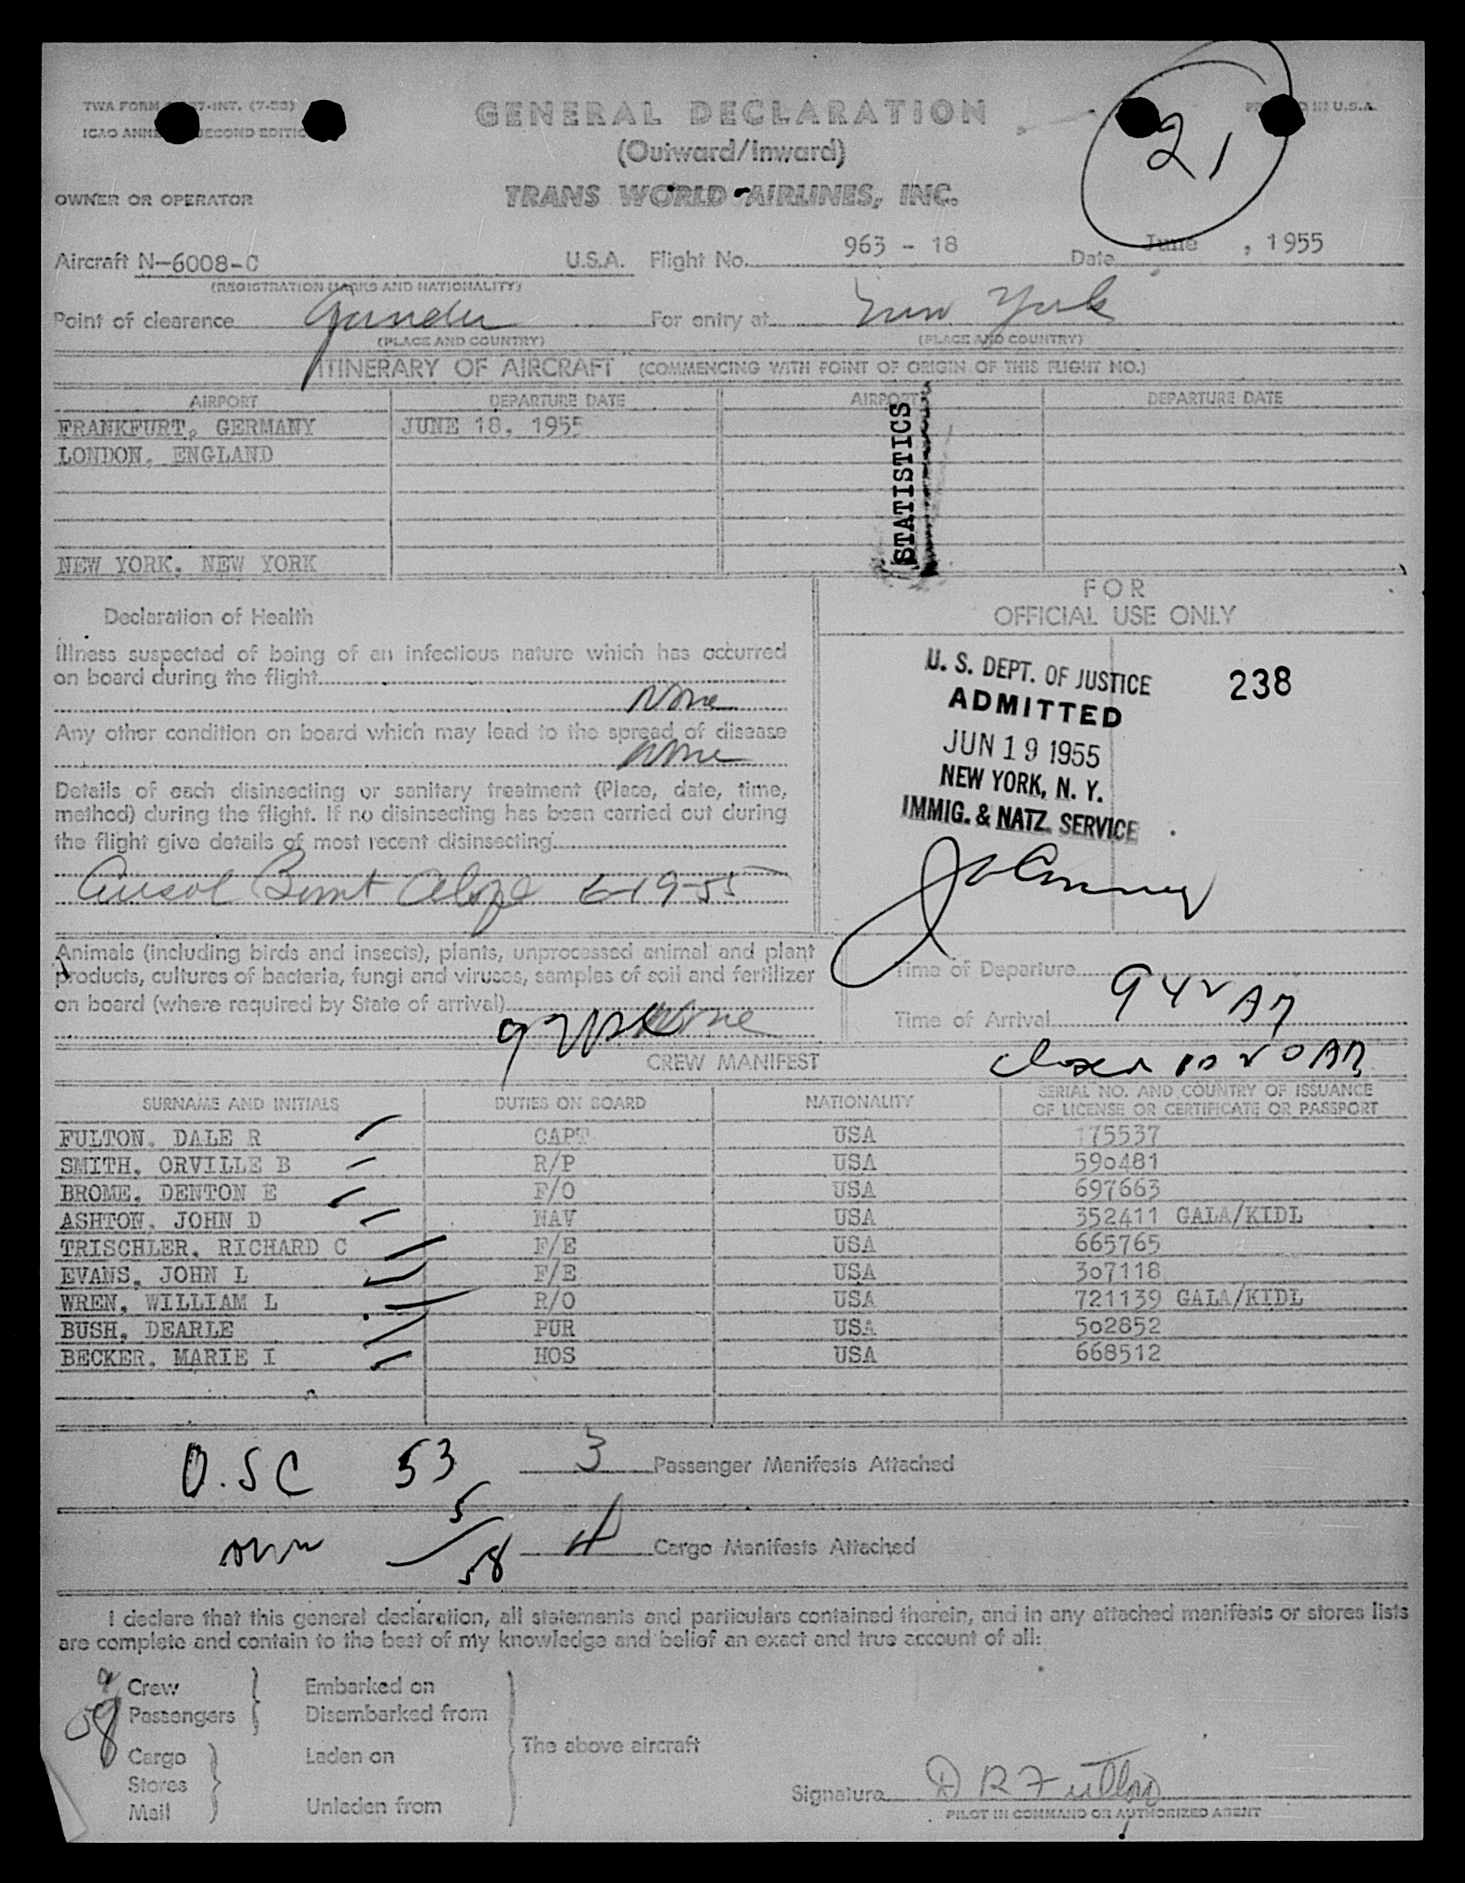 GENERAL DECLARATION
(Outward/Inward)
TRANS WORLD AIRLINES, INC.
21
OWNER OR OPERATOR
Aircraft N-6008-C U.S.A. Flight No. 963 - 18 Date June , 1955
(REGISTRATION MARKS AND NATIONALITY)
Point of clearance Gander For entry at New York
(PLACE AND COUNTRY) (PLACE AND COUNTRY)
ITINERARY OF AIRCRAFT (COMMENCING WITH POINT OF ORIGIN OF THIS FLIGHT NO.)
AIRPORT DEPARTURE DATE AIRPORT DEPARTURE DATE
FRANKFURT, GERMANY JUNE 18, 1955
LONDON, ENGLAND
NEW YORK, NEW YORK
STATISTICS
Declaration of Health
Illness suspected of being of an infectious nature which has occurred
on board during the flight
None
Any other condition on board which may lead to the spread of disease
None
Details of each disinsecting or sanitary treatment (Place, date, time,
method) during the flight. If no disinsecting has been carried out during
the flight give details of most recent disinsecting
6-19-55
FOR
OFFICIAL USE ONLY
U. S. DEPT. OF JUSTICE
ADMITTED
JUN 19 1955
NEW YORK, N. Y.
IMMIG. & NATZ. SERVICE
238
Animals (including birds and insects), plants, unprocessed animal and plant
products, cultures of bacteria, fungi and viruses, samples of soil and fertilizer
on board (where required by State of arrival)
None
Time of Departure
Time of Arrival
CREW MANIFEST
SURNAME AND INITIALS DUTIES ON BOARD NATIONALITY SERIAL NO. AND COUNTRY OF ISSUANCE
OF LICENSE OR CERTIFICATE OR PASSPORT
FULTON, DALE R CAPT USA 175537
SMITH, ORVILLE B R/P USA 590481
BROME, DENTON E F/O USA 697663
ASHTON, JOHN D NAV USA 352411 GALA/KIDL
TRISCHLER, RICHARD C F/E USA 665765
EVANS, JOHN L F/E USA 307118
WREN, WILLIAM L R/O USA 721139 GALA/KIDL
BUSH, DEARLE PUR USA 502852
BECKER, MARIE I HOS USA 668512
O.SC 53 3 Passenger Manifests Attached
5
58 4 Cargo Manifests Attached
I declare that this general declaration, all statements and particulars contained therein, and in any attached manifests or stores lists
are complete and contain to the best of my knowledge and belief an exact and true account of all:
9 Crew Embarked on
58 Passengers Disembarked from
The above aircraft
Cargo Laden on
Stores
Mail Unladen from
Signature D R Fulton
PILOT IN COMMAND OR AUTHORIZED AGENT